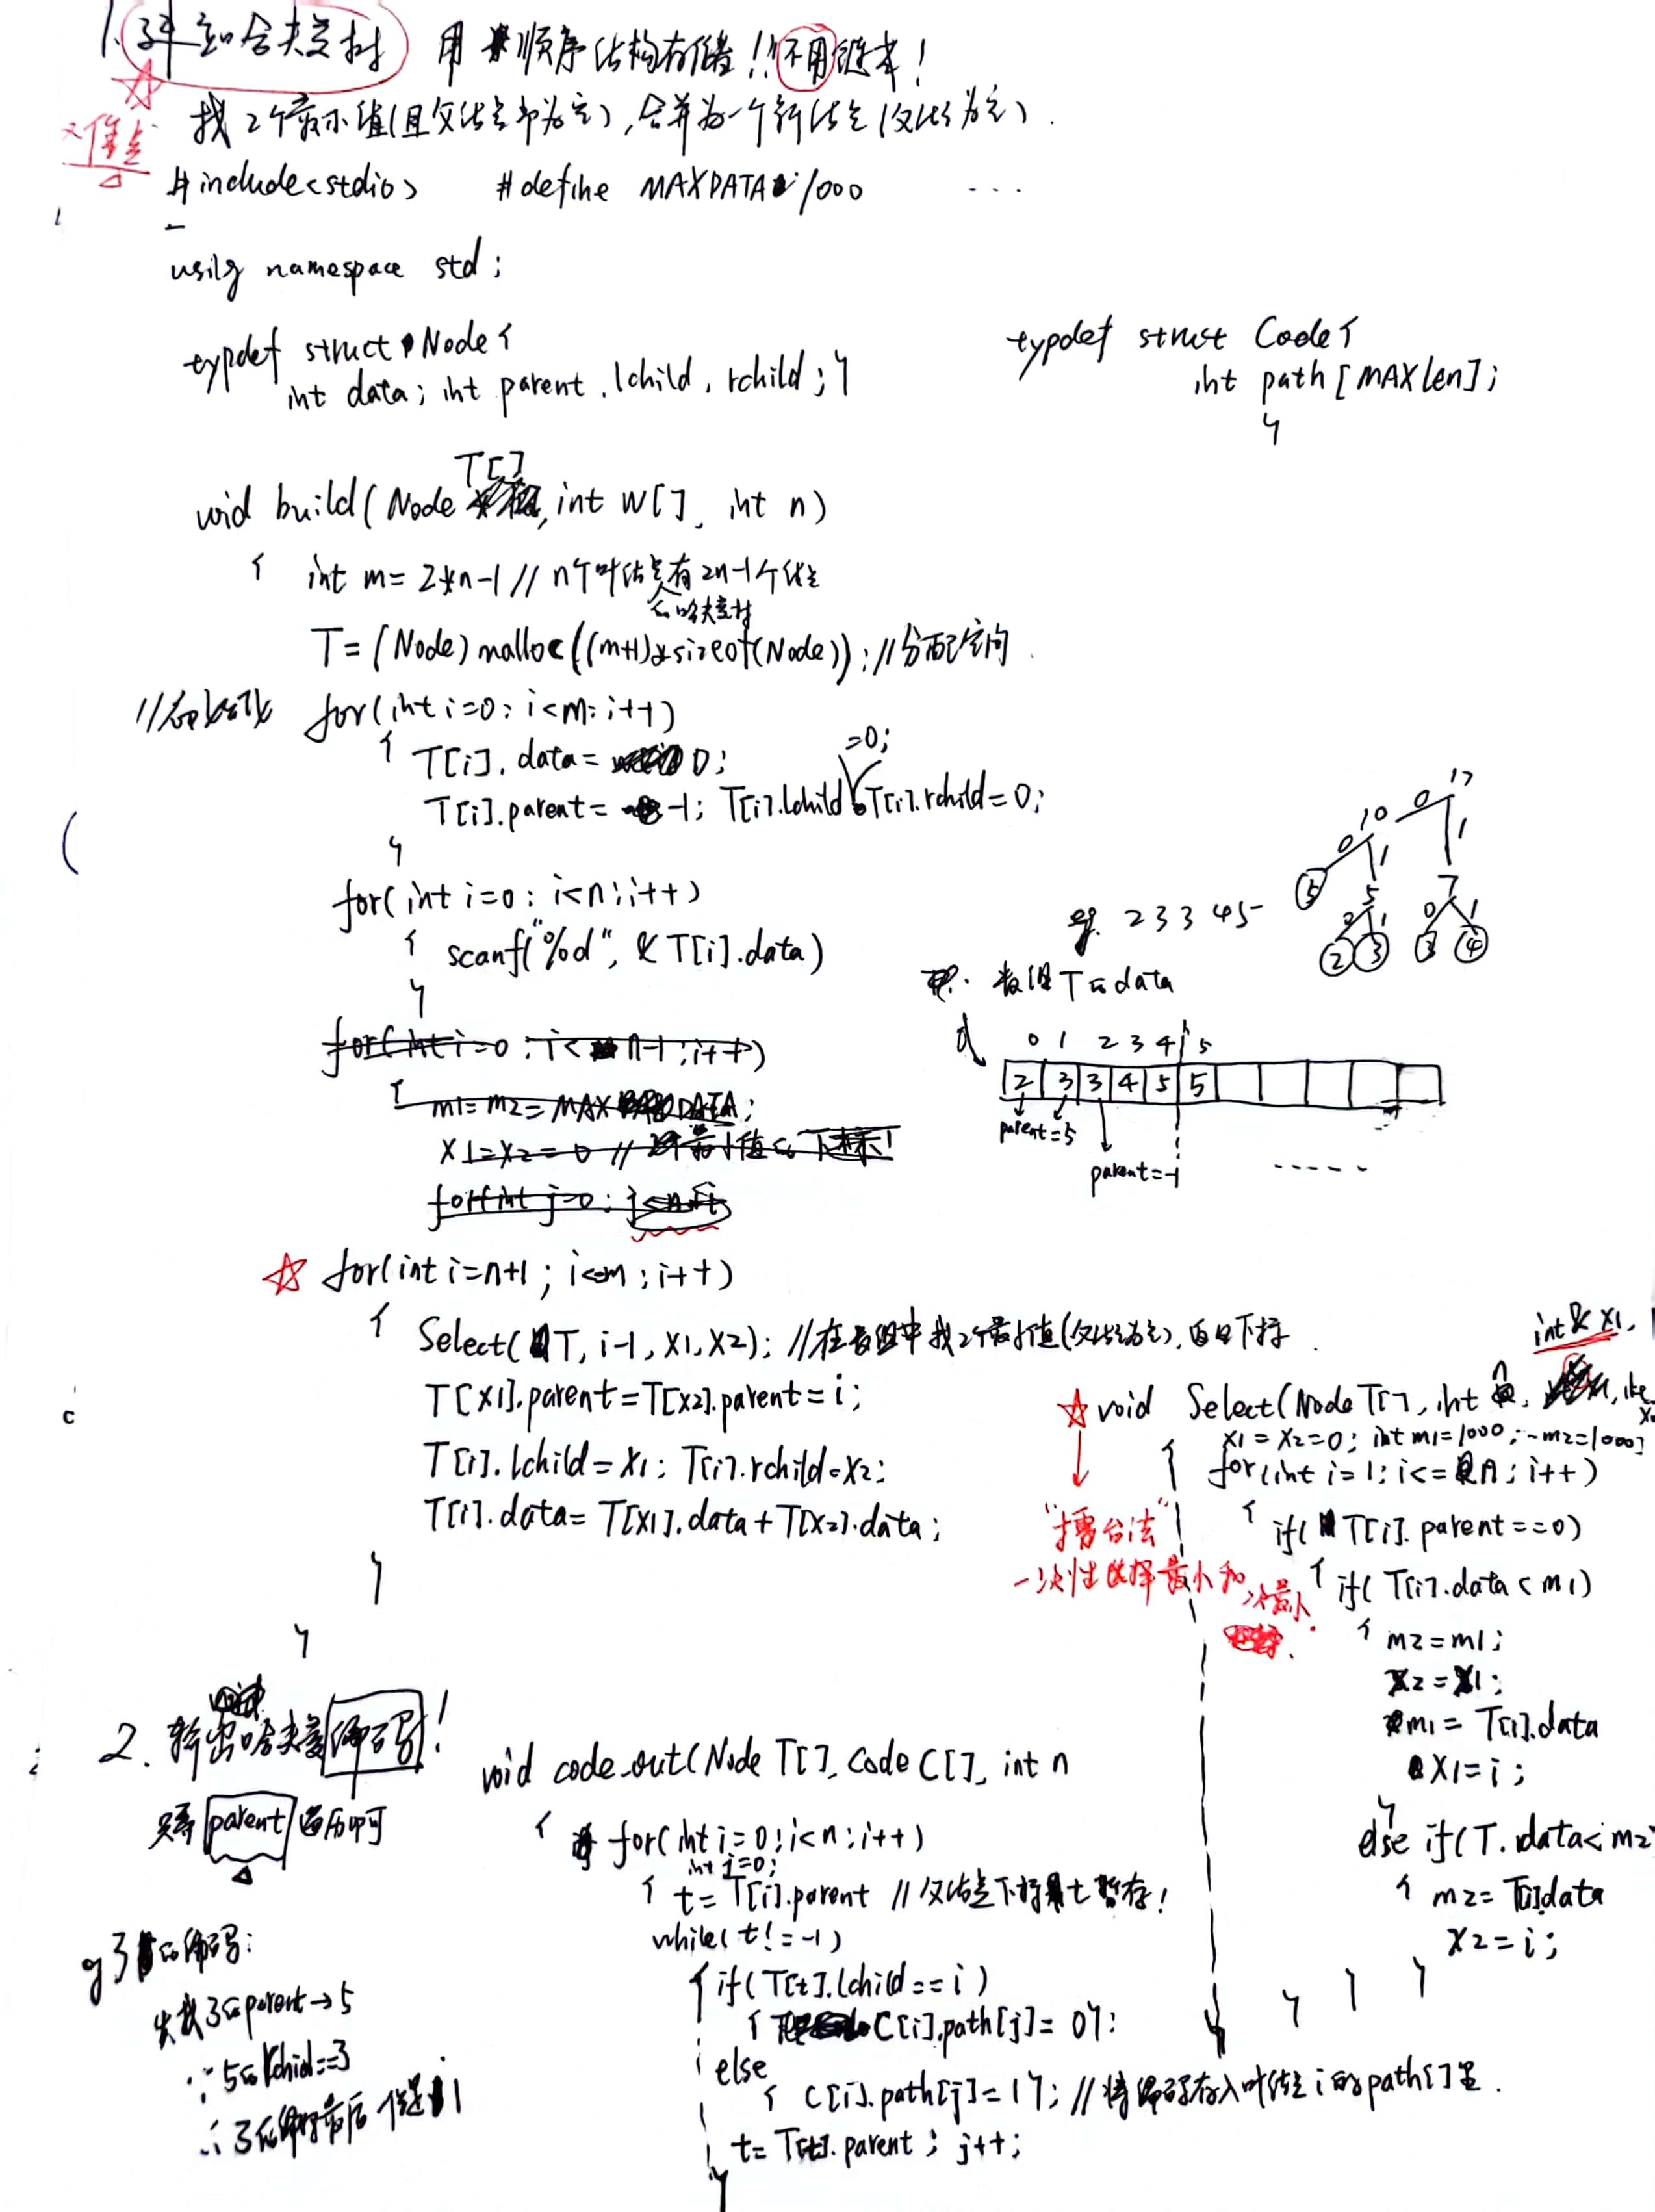 1. 建立哈夫曼树 用顺序结构存储!! 不用链表!
找2个最小值(且父结点即为空), 合并为一个新结点(父结点为空).
#include<stdio> #define MAXDATA 1000 ...
using namespace std;
typdef struct Node{
int data; int parent, lchild, rchild; }
typdef struct Code{
int path[MAXlen];
}
void build(Node T[], int W[], int n)
{ int m= 2*n-1 // n个叶结点有2n-1个结点
的哈夫曼树
T=(Node)malloc((m+1)*sizeof(Node)); //分配空间
//初始化 for(int i=0; i<m; i++)
{ T[i]. data= 0;
=0;
T[i].parent= -1; T[i].lchild T[i].rchild=0;
}
for(int i=0; i<n; i++)
{ scanf("%d", &T[i].data)
}
for(int i=0; i< n-1; i++)
{ m1=m2=MAXDATA;
x1=x2=0 // 最小值的下标!
for(int j=0;
for(int i=n+1; i<=m; i++)
{ Select(T, i-1, x1, x2); //在数组中找2个最小值(父结点为空), 返回下标
T[x1].parent=T[x2].parent=i;
T[i].lchild=x1; T[i].rchild=x2;
T[i].data= T[x1].data+T[x2].data;
}
}
17
0 1
10 7
0 1 0 1
5 5 3 4
0 1
2 3
eg. 2 3 3 4 5
数组T的data
0 1 2 3 4 5
2 3 3 4 5 5
parent=5
parent=-1
......
int& x1,
void Select(Node T[], int n,
x1=x2=0; int m1=1000; ~m2=1000;
{ for(int i=1; i<=n; i++)
{ if( T[i]. parent==0)
{ if( T[i].data< m1)
{ m2=m1;
x2=x1;
m1= T[i].data
x1=i;
}
else if(T. data< m2
{ m2= T[i]data
x2=i;
} } }
"擂台法"
一次性选择最小和次最小
2. 输出哈夫曼编码!
只需parent遍历即可
void code_out(Node T[], Code C[], int n
{ for(int i=0; i<n; i++)
int j=0;
{ t= T[i].parent // 父结点下标用t暂存!
while(t!=-1)
{ if(T[t].lchild==i)
{ C[i].path[j]= 0};
else
{ C[i].path[j]=1}; //将编码存入叶结点i的path[]里.
t= T[t].parent; j++;
}
eg 3的编码:
先找3的parent→5
∵5的rchid==3
∴3的编码最后一个是1